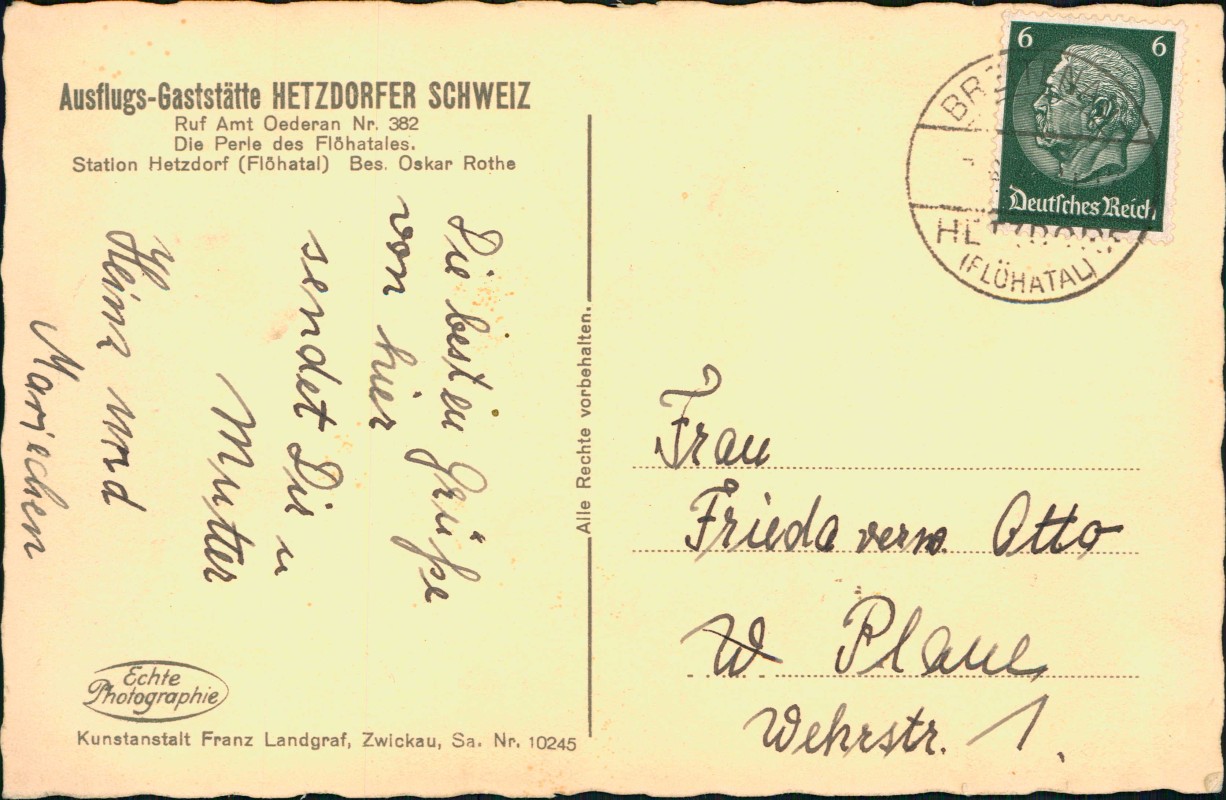 Ausflugs-Gaststätte HETZDORFER SCHWEIZ
Ruf Amt Oederan Nr. 382
Die Perle des Flöhatales.
Station Hetzdorf (Flöhatal) Bes. Oskar Rothe
Die besten Grüße
von hier
sendet Dir u
Mutter
Heinz und
Mariechen
Echte
Photographie
Kunstanstalt Franz Landgraf, Zwickau, Sa. Nr. 10245
Alle Rechte vorbehalten.
6 6
Deutsches Reich
HETZDORF
(FLÖHATAL)
Frau
Frieda verw. Otto
W Plaue
Wehrstr. 1.